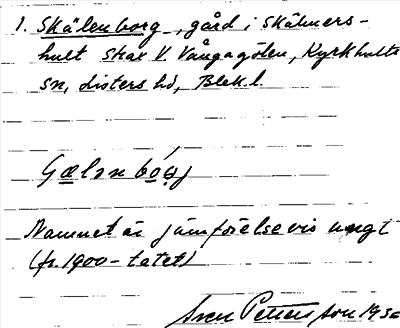 1. Skälenborg, gård i Skälmers-
hult strax V. Vångagölen, Kyrkhults
sn, Listers hd, Blek.l.
Namnet är jämförelsevis ungt
(fr. 1900-talet)
Sven Pettersson 193